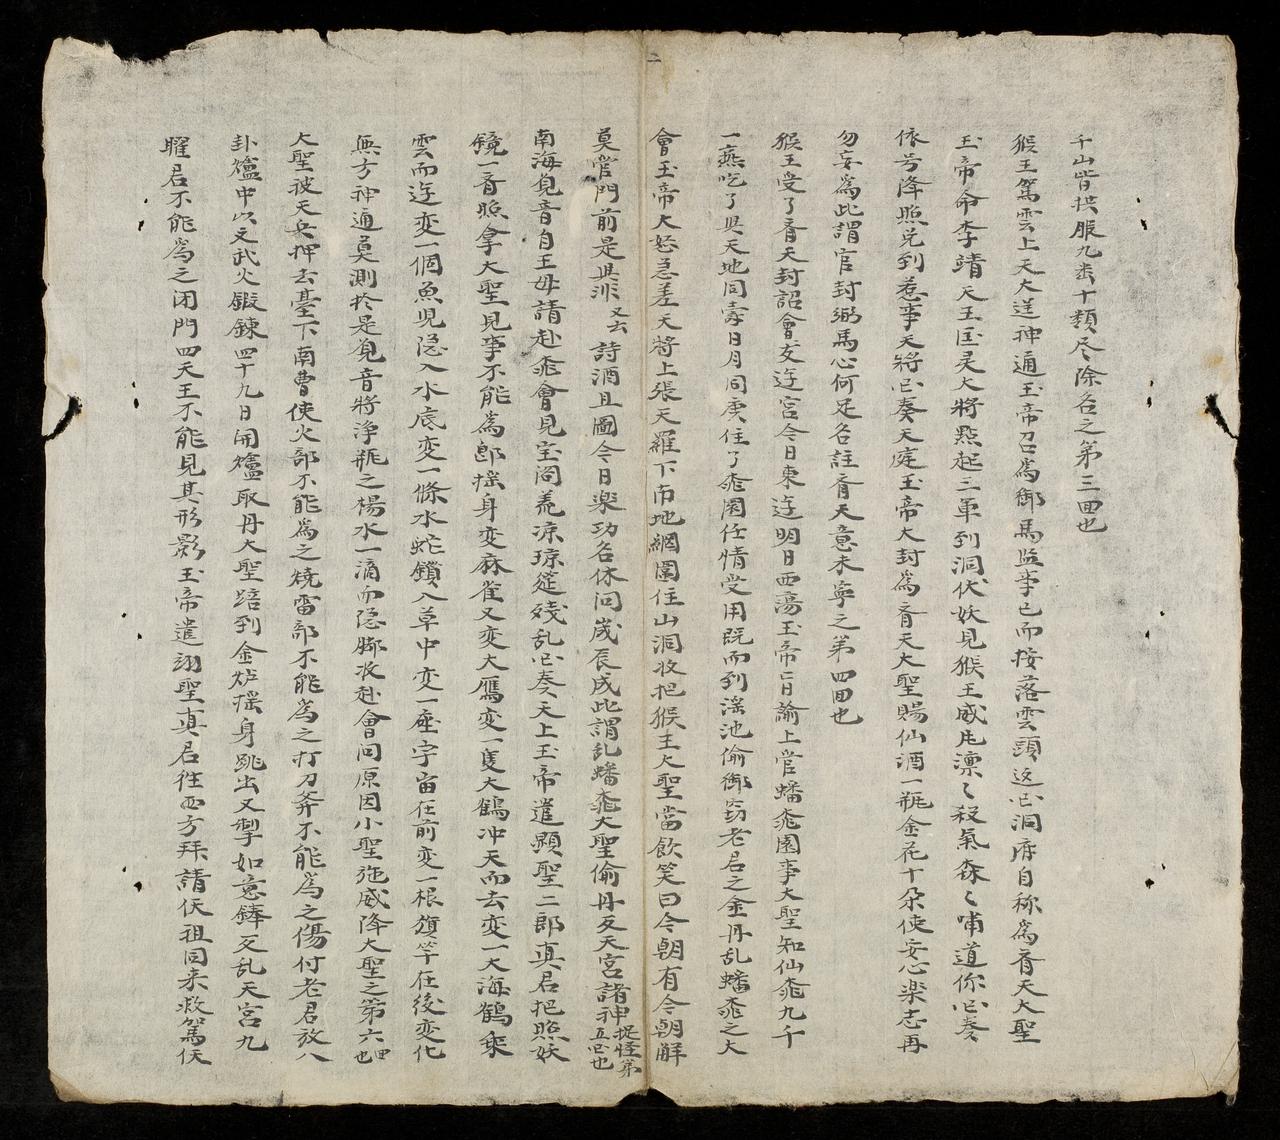 二
千山皆拱服九幽十類尽除名之第三囬也
猴王駕雲上天大送神通玉帝召為御馬监事已而按落雲頭这回洞府自称為齊天大聖
玉帝命李靖天王巨灵大将點起三軍到洞伏妖見猴王威風凛〻殺氣森〻哺道你回奏
依号降照兑到惹事天将回奏天庭玉帝大封為齊天大聖賜仙酒一瓶金花十朶使安心楽志再
勿妄為此謂官封弼馬心何足名註齊天意未寧之第四囬也
猴王受了齊天封詔會友遊宮今日東遊明日西蕩玉帝旨諭上管蟠桃園事大聖知仙桃九千
一熟吃了與天地同壽日月同庚住了桃園任情受用既而到瑶池偷御窃老君之金丹乱蟠桃之大
會玉帝大怒急差天将上張天羅下布地網圍住山洞收把猴王大聖當飲笑曰今朝有今朝解
莫管門前是與非又云詩酒且圖今日楽功名休问歲辰成此謂乱蟠桃大聖偷丹反天宮諸神捉怪第五回也
南海覌音自王母請赴桃會見宝阁荒凉琼筵殘乱回奏天上玉帝遣顯聖二郎真君把照妖
鏡一齊照拿大聖見事不能為郎摇身变麻雀又变大鷹变一隻大鶴冲天而去变一大海鶴乘
雲而遊变一個魚児隐入水底变一條水蛇鑽入草中变一座宇宙在前变一根旗竿在後变化
無方神通莫測於是覌音将淨瓶之楊水一滴而隐腳收赴會问原因小聖施威降大聖之第六囬也
大聖被天兵押去臺下南曹使火部不能為之燒雷部不能為之打刀斧不能為之傷付老君放八
卦爐中以文武火鍛鍊四十九日開爐取丹大聖踣到金炉摇身跳出又掣如意鋒反乱天宮九
曜君不能為之闭門四天王不能見其形影玉帝遣翊聖真君徃西方拜請仸祖回来救駕仸